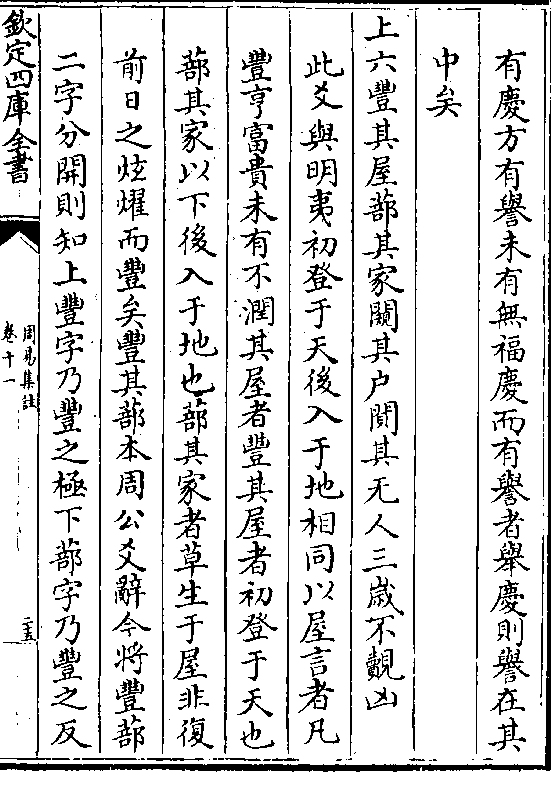 有慶方有譽未有無福慶而有譽者舉慶則譽在其
中矣
上六豐其屋蔀其家闚其户闃其无人三歲不覿凶
此爻與明夷初登于天後入于地相同以屋言者凡
豐亨富貴未有不潤其屋者豐其屋者初登于天也
蔀其家以下後入于地也蔀其家者草生于屋非復
前日之炫燿而豐矣豐其蔀本周公爻辭今將豐蔀
二字分開則知上豐字乃豐之極下蔀字乃豐之反
欽定四庫全書
周易集註
卷十一
二十五